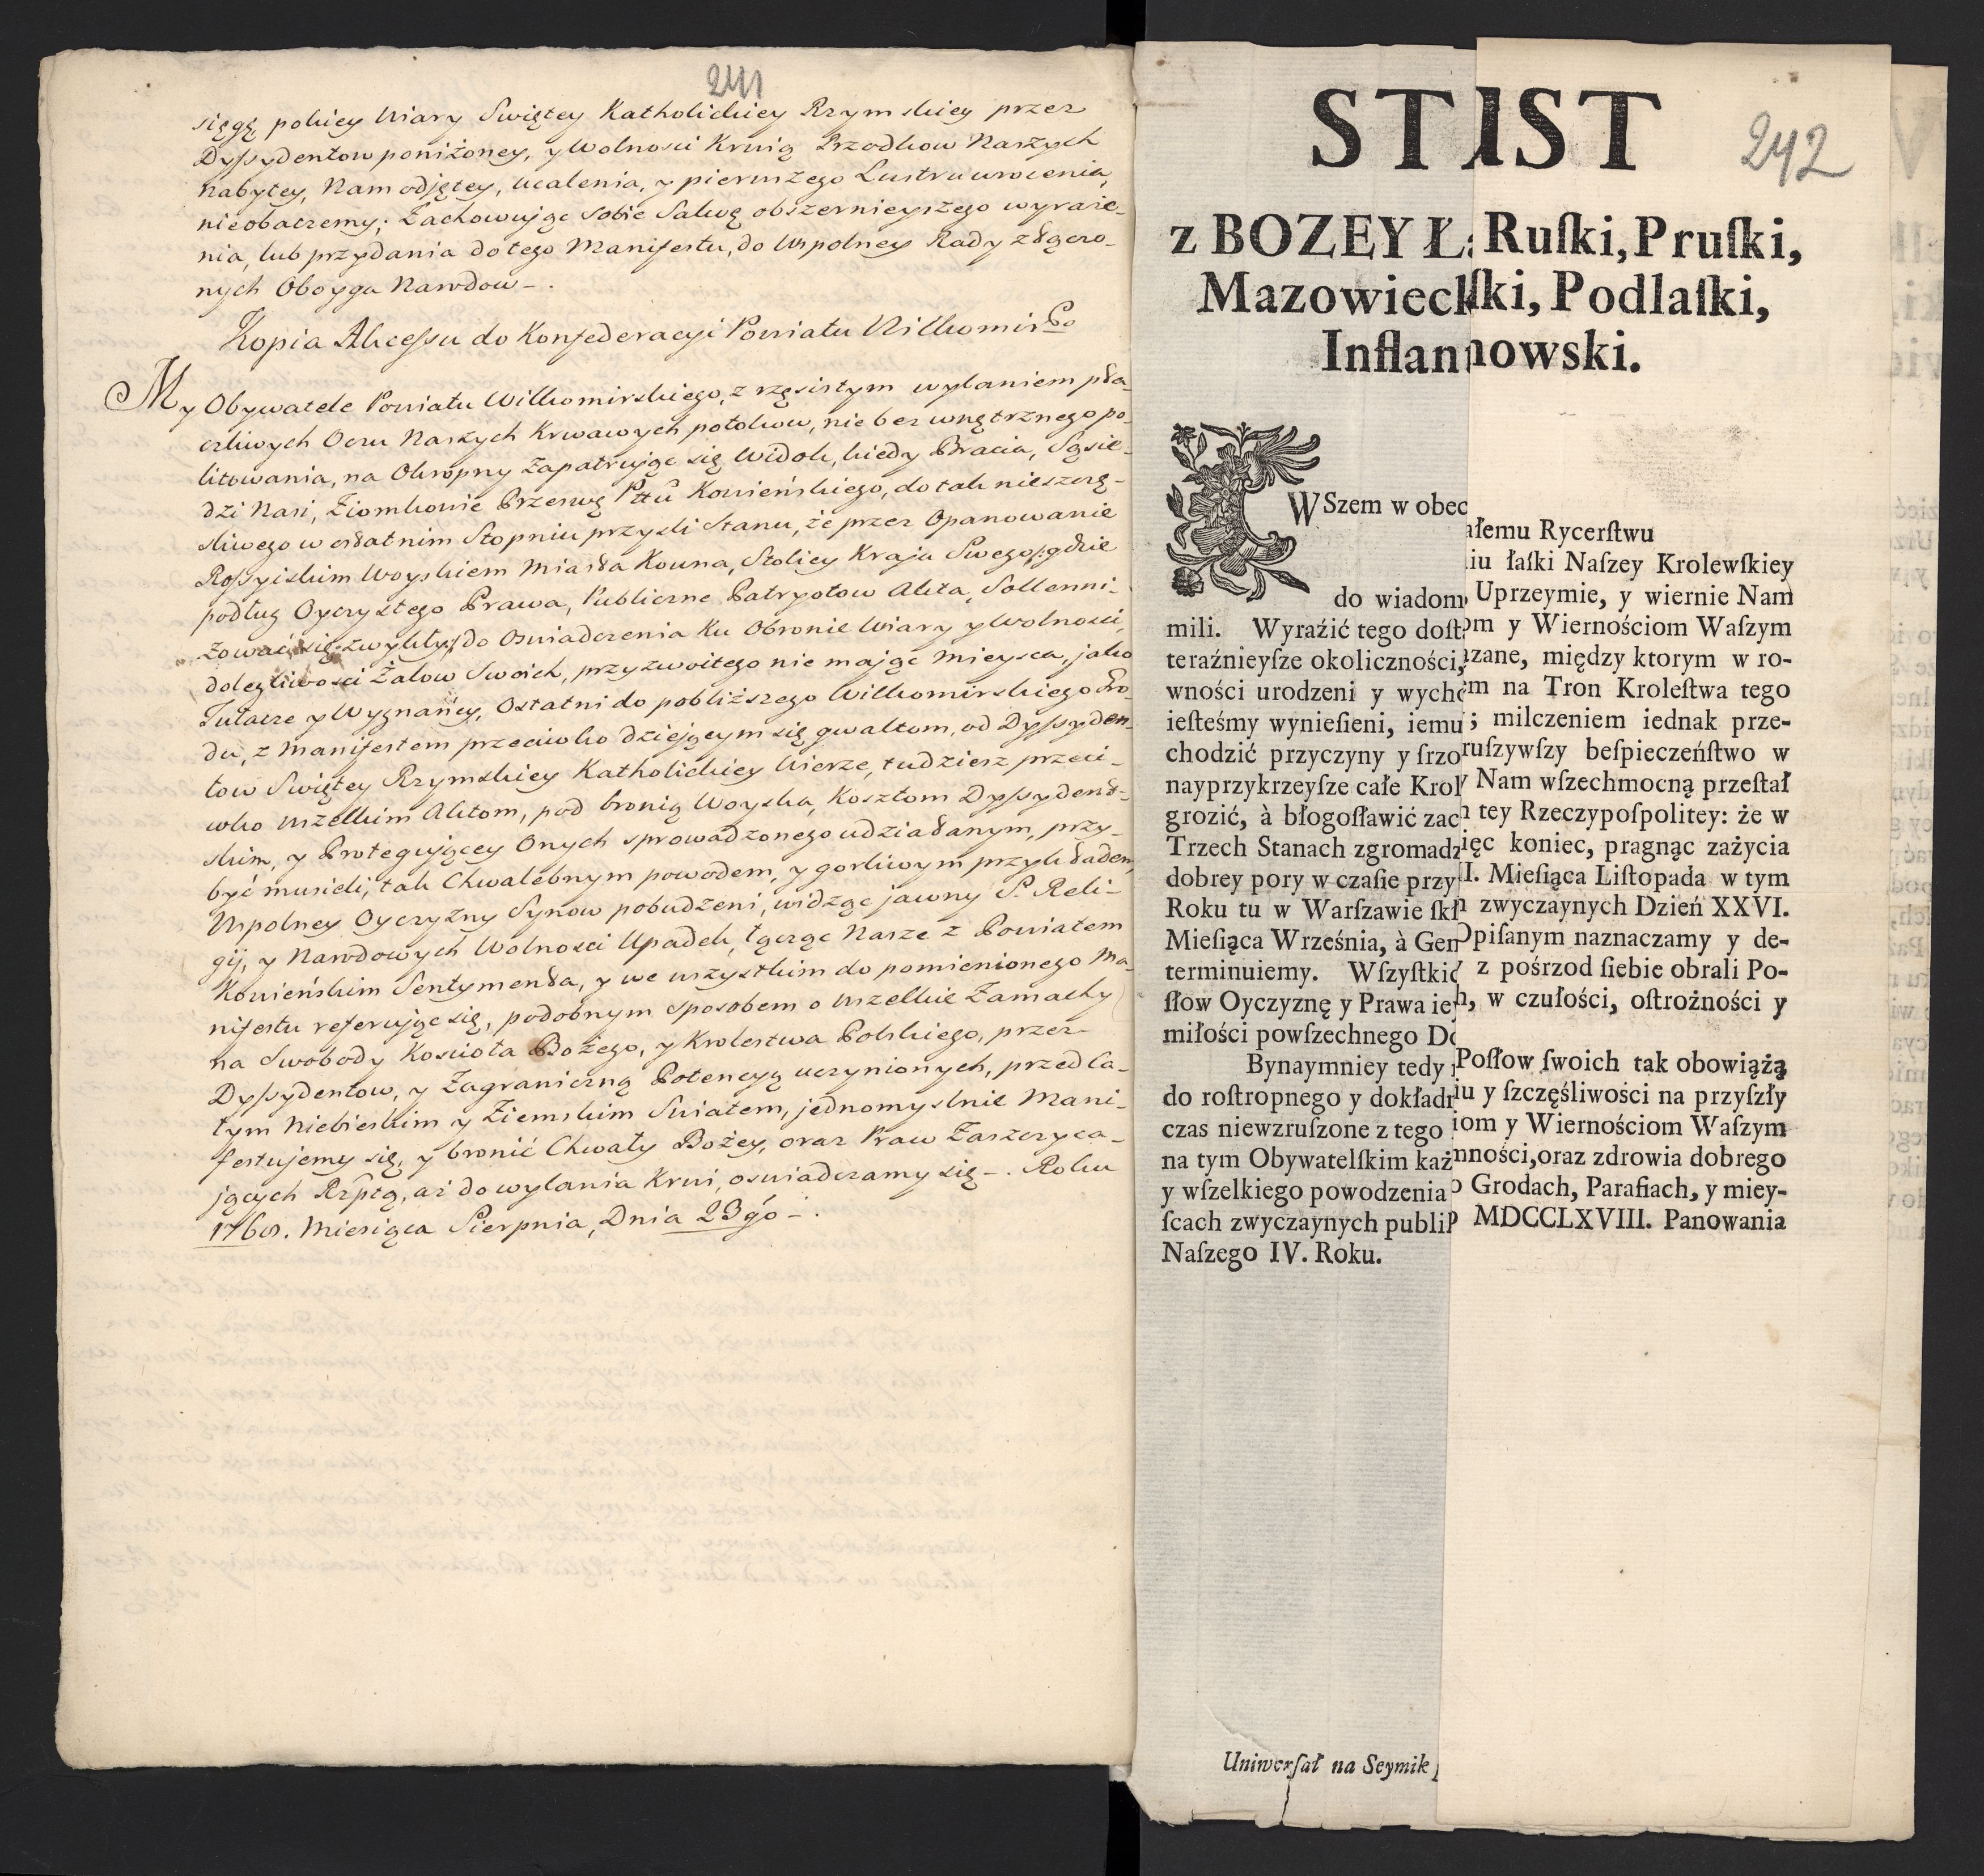 241
sięgę polney Wiary Swiętey Katholickiey Rzymskiey przez
Dyssydentow poniżoney, y Wolnosci Krwią Przodkow Naszych
nabytey, Nam odjętey, ucalenia, y pierwszego Lustru wrocenia,
nieobaczemy; Zachowując sobie Salwę obszernieyszego wyraże-
nia, lub przydania do tego Manifestu, do Wspolney Rady złączo-
nych Oboyga Narodow -.
Kopia Akcessu do Konfederacyi Powiatu Wilkomirgo
My Obywatele Powiatu Wilkomirskiego, z rzęsistym wylaniem pła-
czliwych Oczu Naszych Krwawych potokow, nie bez wnętrznego po-
litowania, na Okropny Zapatrując się Widok, kiedy Bracia, Sąsie-
dzi Nasi, Ziomkowie Przeswę Pttu Kowieńskiego, do tak nieszczę-
śliwego w ostatnim Stopniu przyszli Stanu, że przez Opanowanie
Rossyiskim Woyskiem Miasta Kowna, Stolicy Kraju Swego /: gdzie
podług Oyczystego Prawa, Publiczne Patryotow Akta, Sollenni-
zować się zwykły :/ do oswiadczenia Ku Obronie Wiary y Wolnosci,
dolegliwosci Żalow Swoich, przyzwoitego nie mając Mieysca, jako
Tułacze y Wygnańcy, Ostatni do pobliższego Wilkomirskiego Gro-
du, z Manifestem przeciwko dziejącym się gwałtom, od Dyssyden-
tow Swiętey Rzymskiey Katholickiey Wierze, tudziesz przeci-
wko wszelkim Aktom, pod bronią Woyska, Kosztom Dyssydent-
skim, y Protegującey Onych sprowadzonego udziałanym, przy-
być musieli, tak Chwalebnym powodem, y gorliwym przykładem
Wspolney Oyczyzny Synow pobudzeni, widząc jawny S. Reli-
gij, y Narodowych Wolnosci Upadek, łącząc Nasze z Powiatem
Kowieńskim Sentymenta, y we wszystkim do pomienionego Ma-
nifestu referując się, podobnym sposobem o wszelkie Zamachy
na Swobody Kościoła Bożego, y Krolestwa Polskiego, przez
Dyssydentow, y Zagraniczną Potencyą uczynionych, przed ca-
łym Niebieskim y Ziemskim Swiatem, jednomyslnie Mani-
festujemy się, y bronić Chwały Bożey, oraz Praw Zaszczyca-
jących Rzptą, aż do wylania Krwi, oswiadczamy się -. Roku
1768. Miesiąca Sierpnia, Dnia 23go -.
STIST
242
z BOZEY Ła Ruſki, Pruſki,
Mazowieckſki, Podlaſki,
Inflannowski.
WSzem w obec
ałemu Rycerſtwu
iu łaſki Naſzey Krolewſkiey
do wiadom Uprzeymie, y wiernie Nam
mili. Wyraźić tego doſt om y Wiernościom Waſzym
teraźnieyſze okoliczności, zane, między ktorym w ro-
wności urodzeni y wycho m na Tron Kroleſtwa tego
ieſteśmy wynieſieni, iemu ; milczeniem iednak prze-
chodzić przyczyny y ſrzo ruſzywſzy beſpieczeńſtwo w
nayprzykrzeyſze całe Krol y Nam wſzechmocną przeſtał
grozić, à błogoſławić zac tey Rzeczypoſpolitey: że w
Trzech Stanach zgromadz ięc koniec, pragnąc zażycia
dobrey pory w czaſie przy I. Mieſiąca Liſtopada w tym
Roku tu w Warſzawie ſkł zwyczaynych Dzień XXVI.
Mieſiąca Września, à Gen Opiſanym naznaczamy y de-
terminuiemy. Wſzyſtkic z pośrzod ſiebie obrali Po-
ſłow Oyczyznę y Prawa iey h, w czułości, oſtrożności y
miłości powſzechnego Do
Bynaymniey tedy Poſłow ſwoich tak obowiążą
do roſtropnego y dokładn iu y ſzczęśliwości na przyſzły
czas niewzruſzone z tego iom y Wiernościom Waſzym
na tym Obywatelſkim każ nności, oraz zdrowia dobrego
y wſzelkiego powodzenia o Grodach, Parafiach, y miey-
ſcach zwyczaynych publip MDCCLXVIII. Panowania
Naſzego IV. Roku.
Uniwerſał na Seymik